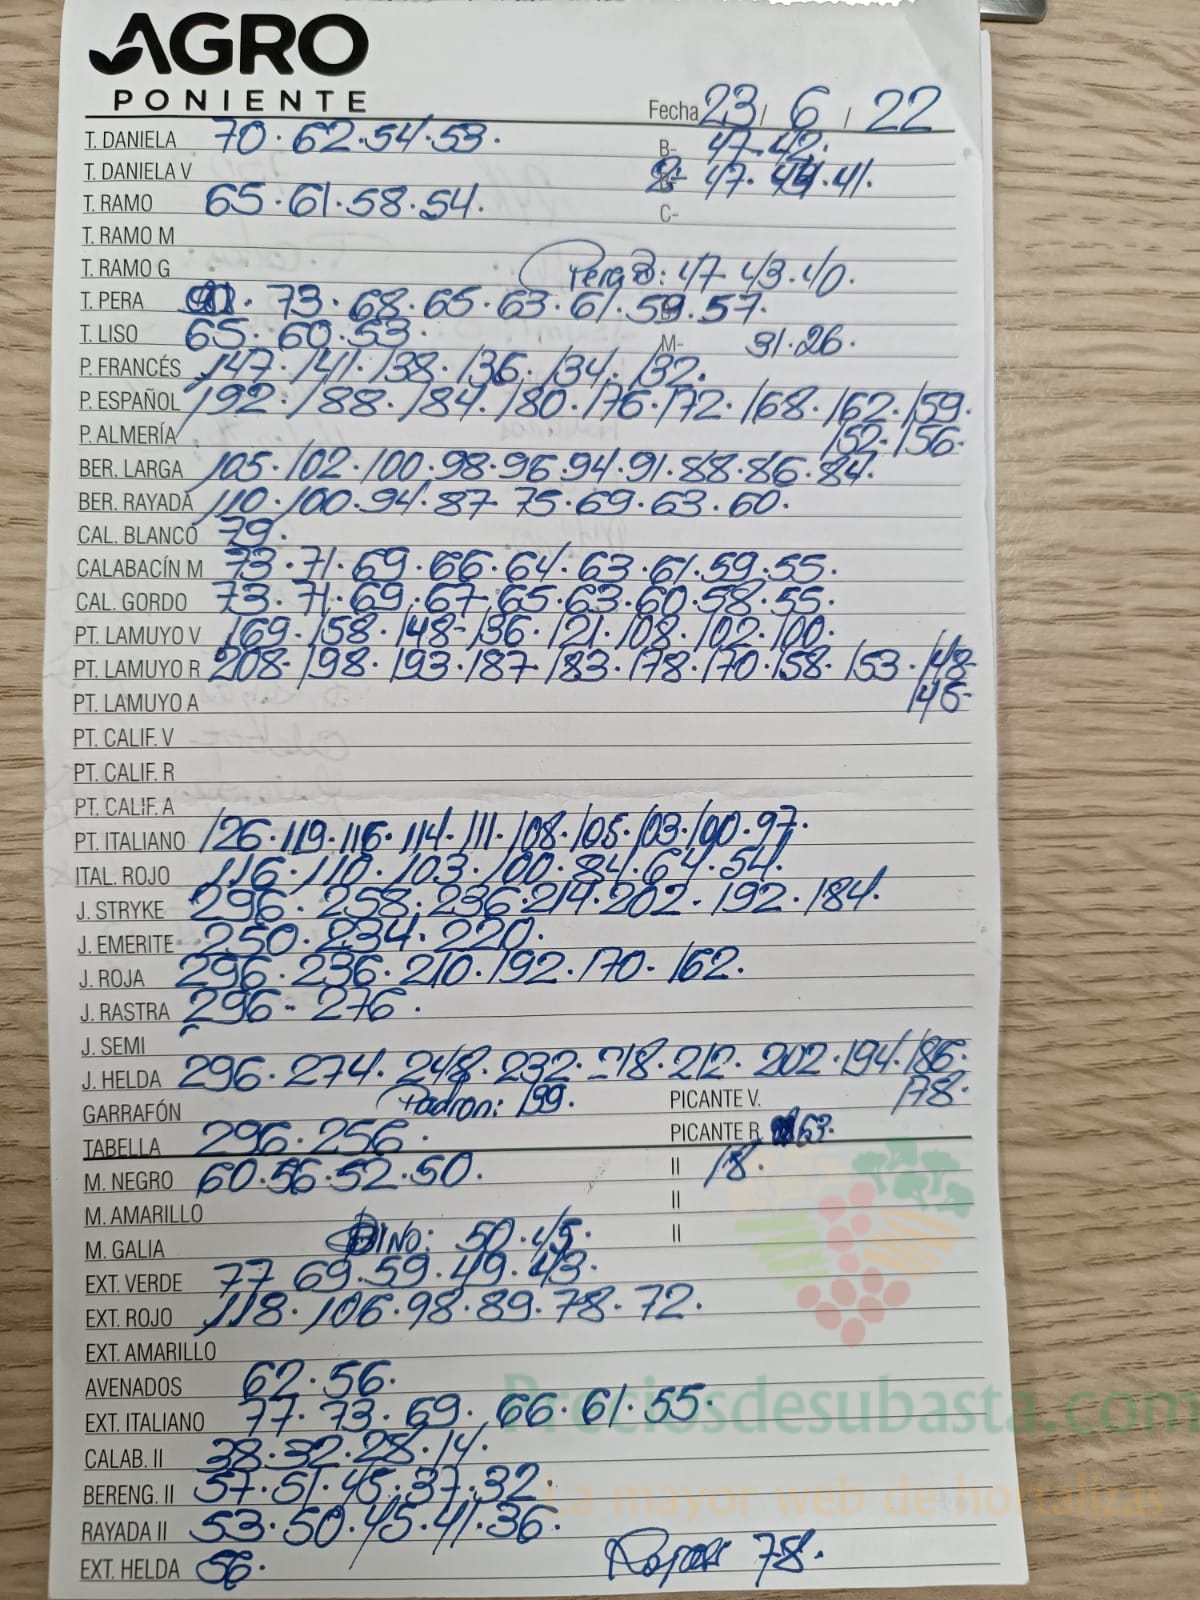 AGRO
PONIENTE
Fecha 23 / 6 / 22
T. DANIELA 70 . 62 . 54 . 53 . B- 47 . 42 .
T. DANIELA V 47 . 44 . 41 .
T. RAMO 65 . 61 . 58 . 54 . C-
T. RAMO M
T. RAMO G Pera B: 47 - 43 . 40 .
T. PERA 73 . 68 . 65 . 63 . 61 . 59 . 57 .
T. LISO 65 . 60 . 53 . M- 31 . 26 .
P. FRANCÉS 147 . 141 . 138 . 136 . 134 . 132 .
P. ESPAÑOL 192 . 188 . 184 . 180 . 176 . 172 . 168 . 162 . 159 .
P. ALMERÍA 152 - 156 -
BER. LARGA 105 . 102 . 100 . 98 . 96 . 94 . 91 . 88 . 86 . 84 .
BER. RAYADA 110 . 100 . 94 . 87 - 75 . 69 . 63 . 60 .
CAL. BLANCO 79 .
CALABACÍN M 73 . 71 . 69 . 66 . 64 . 63 . 61 . 59 . 55 .
CAL. GORDO 73 . 71 . 69 . 67 - 65 . 63 . 60 . 58 . 55 .
PT. LAMUYO V 169 . 158 . 148 - 136 . 121 . 108 . 102 . 100 .
PT. LAMUYO R 208 - 198 . 193 . 187 - 183 . 178 . 170 . 158 . 153 . 148 -
PT. LAMUYO A 145 -
PT. CALIF. V
PT. CALIF. R
PT. CALIF. A
PT. ITALIANO 126 . 119 . 116 . 114 . 111 . 108 . 105 . 103 . 100 . 97 .
ITAL. ROJO 116 . 110 . 103 . 100 . 84 . 64 . 54 .
J. STRYKE 296 . 258 . 236 . 214 . 202 - 192 . 184 .
J. EMERITE 250 . 234 . 220 .
J. ROJA 296 . 236 . 210 . 192 . 170 - 162 .
J. RASTRA 296 - 276 .
J. SEMI
J. HELDA 296 . 274 . 248 . 232 . 218 . 212 . 202 . 194 . 186 .
GARRAFÓN Padron: 199 . PICANTE V. 178 .
TABELLA 296 . 256 . PICANTE R.
M. NEGRO 60 . 56 . 52 . 50 . II 18 .
M. AMARILLO II
M. GALIA DINO: 50 . 45 . II
EXT. VERDE 77 69 . 59 . 49 . 43 .
EXT. ROJO 118 . 106 . 98 . 89 . 78 . 72 .
EXT. AMARILLO
AVENADOS 62 . 56 .
Preciosdesubasta.com
EXT. ITALIANO 77 . 73 . 69 . 66 . 61 . 55 .
CALAB. II 38 . 32 . 28 . 14 .
BERENG. II 57 . 51 . 45 . 37 . 32 .
La mayor web de hortalizas
RAYADA II 53 . 50 . 45 . 41 . 36 .
EXT. HELDA 56 . 78 .